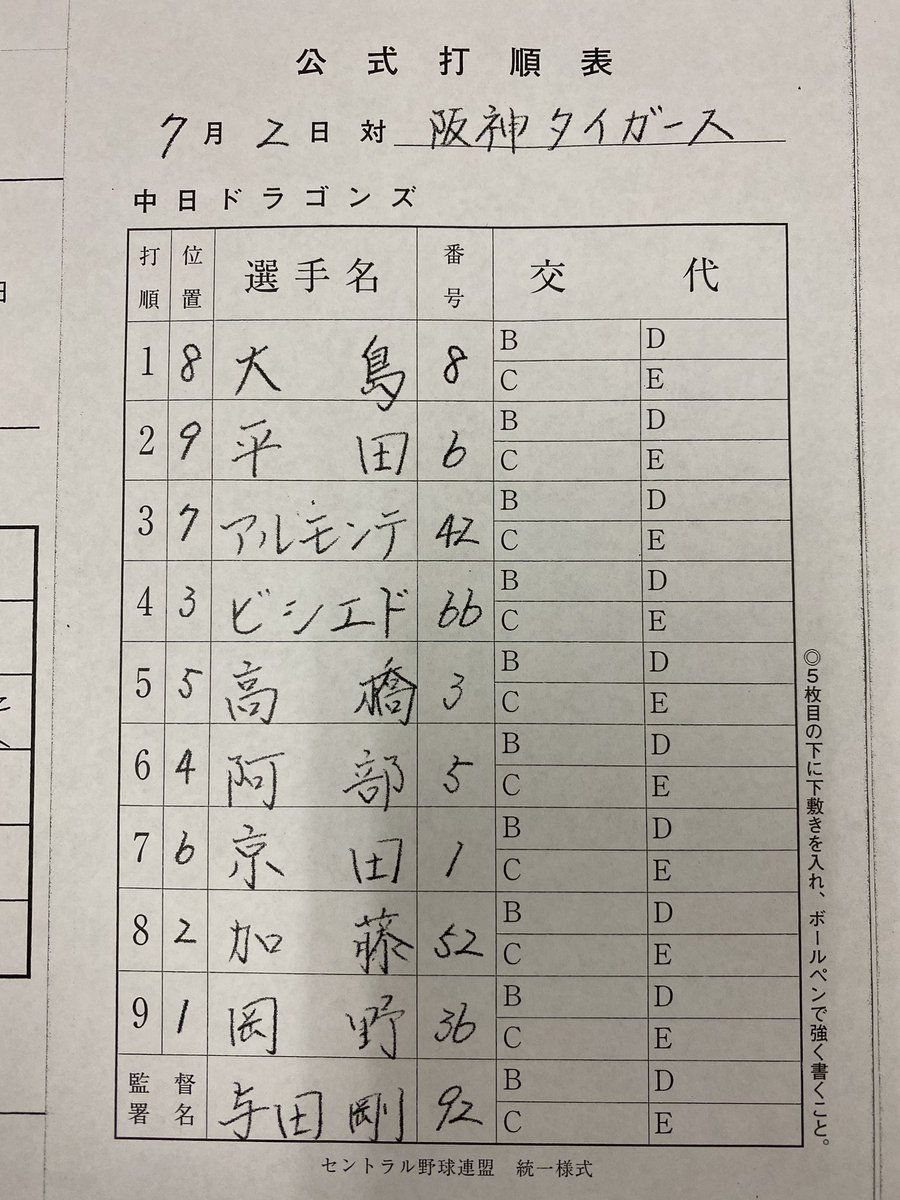 公式打順表
7月2日対 阪神タイガース
中日ドラゴンズ
打順 位置 選手名 番号 交代
1 8 大島 8 B D C E
2 9 平田 6 B D C E
3 7 アルモンテ 42 B D C E
4 3 ビシエド 66 B D C E
5 5 高橋 3 B D C E
6 4 阿部 5 B D C E
7 6 京田 1 B D C E
8 2 加藤 52 B D C E
9 1 岡野 36 B D C E
監督署名 与田剛 92 B D C E
セントラル野球連盟 統一様式
◎5枚目の下に下敷きを入れ、ボールペンで強く書くこと。
日